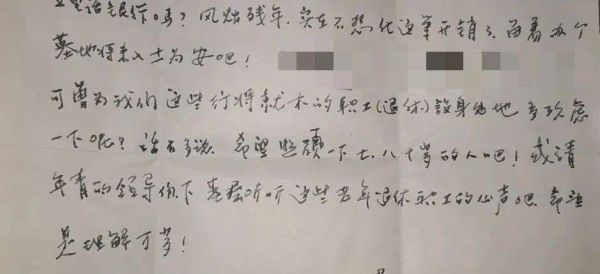 风烛残年,实在不想化这笔开销了,留着办个
墓地将来入土为安吧!
可曾为我们这些行将就木的职工(退休)设身处地多考虑
一下呢?话不多说,希望照顾一下七、八十岁的人吧!或请
年青的领导们下基层听听这些老年退休职工的心声吧,希望
是理解万岁!